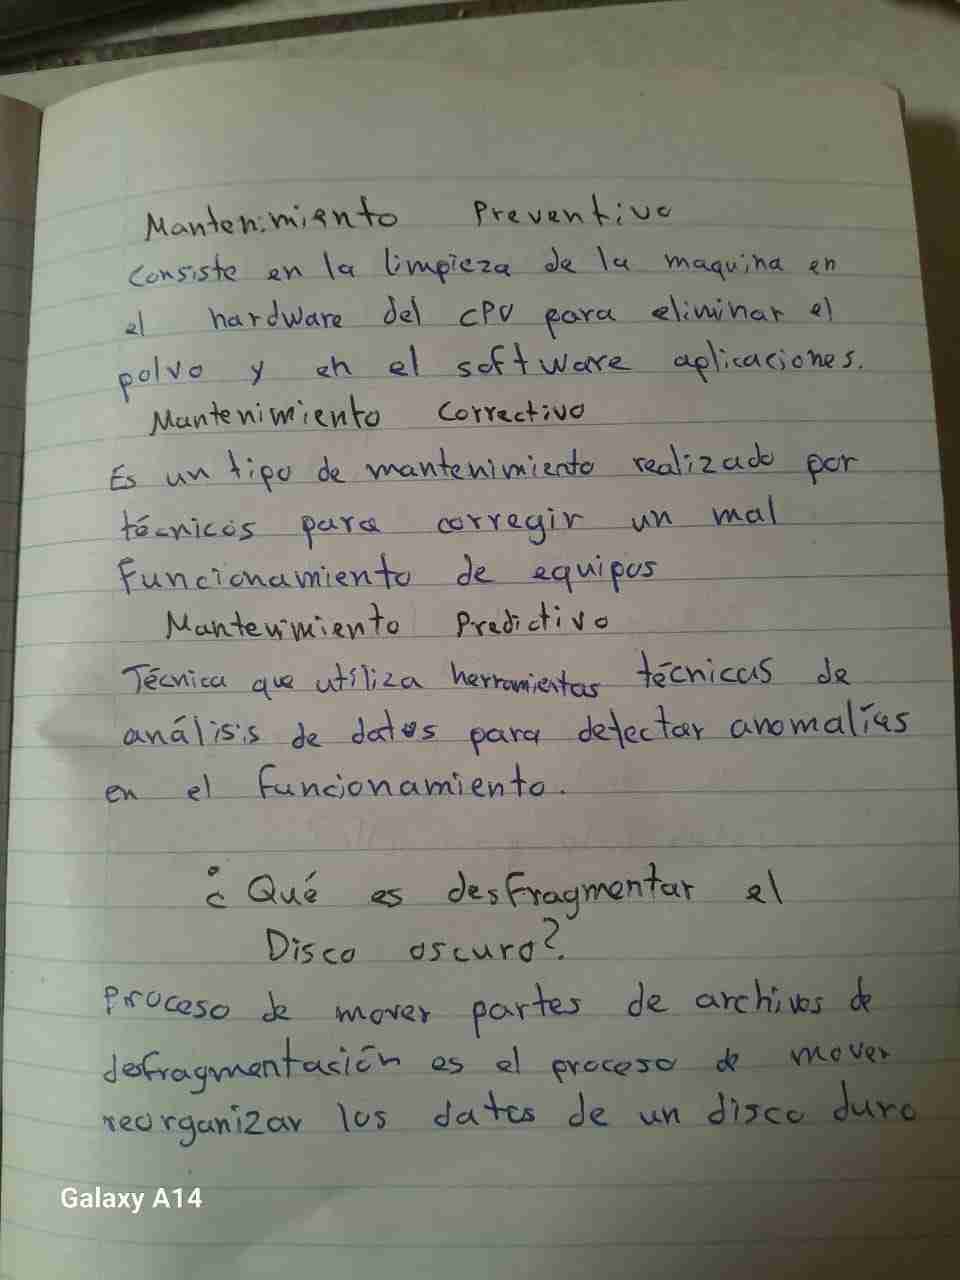 Mantenimiento Preventivo
consiste en la limpieza de la maquina en
el hardware del CPU para eliminar el
polvo y en el software aplicaciones.
Mantenimiento Correctivo
Es un tipo de mantenimiento realizado por
técnicos para corregir un mal
funcionamiento de equipos
Mantenimiento Predictivo
Técnica que utiliza herramientas técnicas de
análisis de datos para detectar anomalías
en el funcionamiento.
¿Qué es desfragmentar el
Disco oscuro?.
Proceso de mover partes de archivos de
desfragmentación es el proceso de mover
reorganizar los datos de un disco duro
Galaxy A14